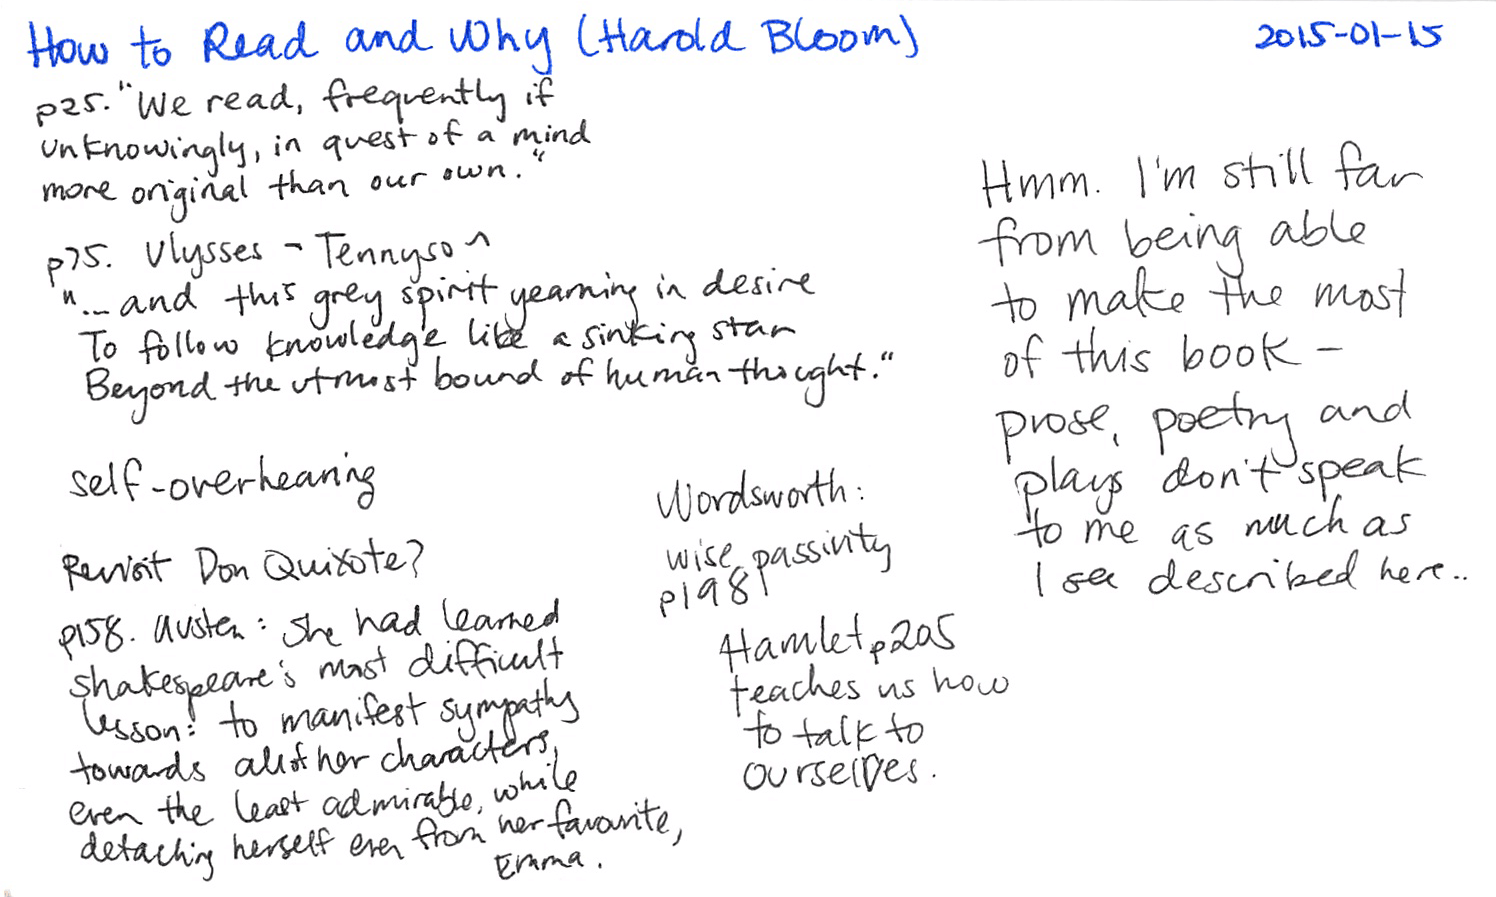 How to Read and Why (Harold Bloom)
2015-01-15
p25. "We read, frequently if
unknowingly, in quest of a mind
more original than our own."
p75. Ulysses - Tennyson
"... and this grey spirit yearning in desire
To follow knowledge like a sinking star
Beyond the utmost bound of human thought."
self-overhearing
Revisit Don Quixote?
p158. Austen: She had learned
Shakespeare's most difficult
lesson: to manifest sympathy
towards all of her characters,
even the least admirable, while
detaching herself even from her favourite,
Emma.
Wordsworth:
wise passivity
p198
Hamlet p205
teaches us how
to talk to
ourselves.
Hmm. I'm still far
from being able
to make the most
of this book -
prose, poetry and
plays don't speak
to me as much as
I see described here..